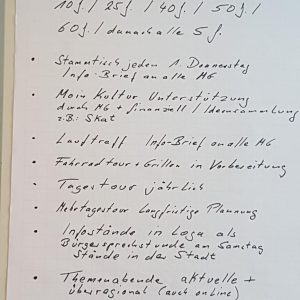 10 J. / 25 J. / 40 J. / 50 J. /
60 J. / danach alle 5 J.
• Stammtisch jeden 1. Donnerstag
Info-Brief an alle MG
• Kultur Unterstützung
durch MG + finanziell / Ideensammlung
z.B.: Skat
• Lauftreff Info-Brief an alle MG
• Fahrradtour + Grillen in Vorbereitung
• Tagestour jährlich
• Mehrtagestour langfristige Plannung
• Infostände in Loga als
Bürgersprechstunde am Samstag
Stände in der Stadt
• Themenabende aktuelle +
überregional (auch online)